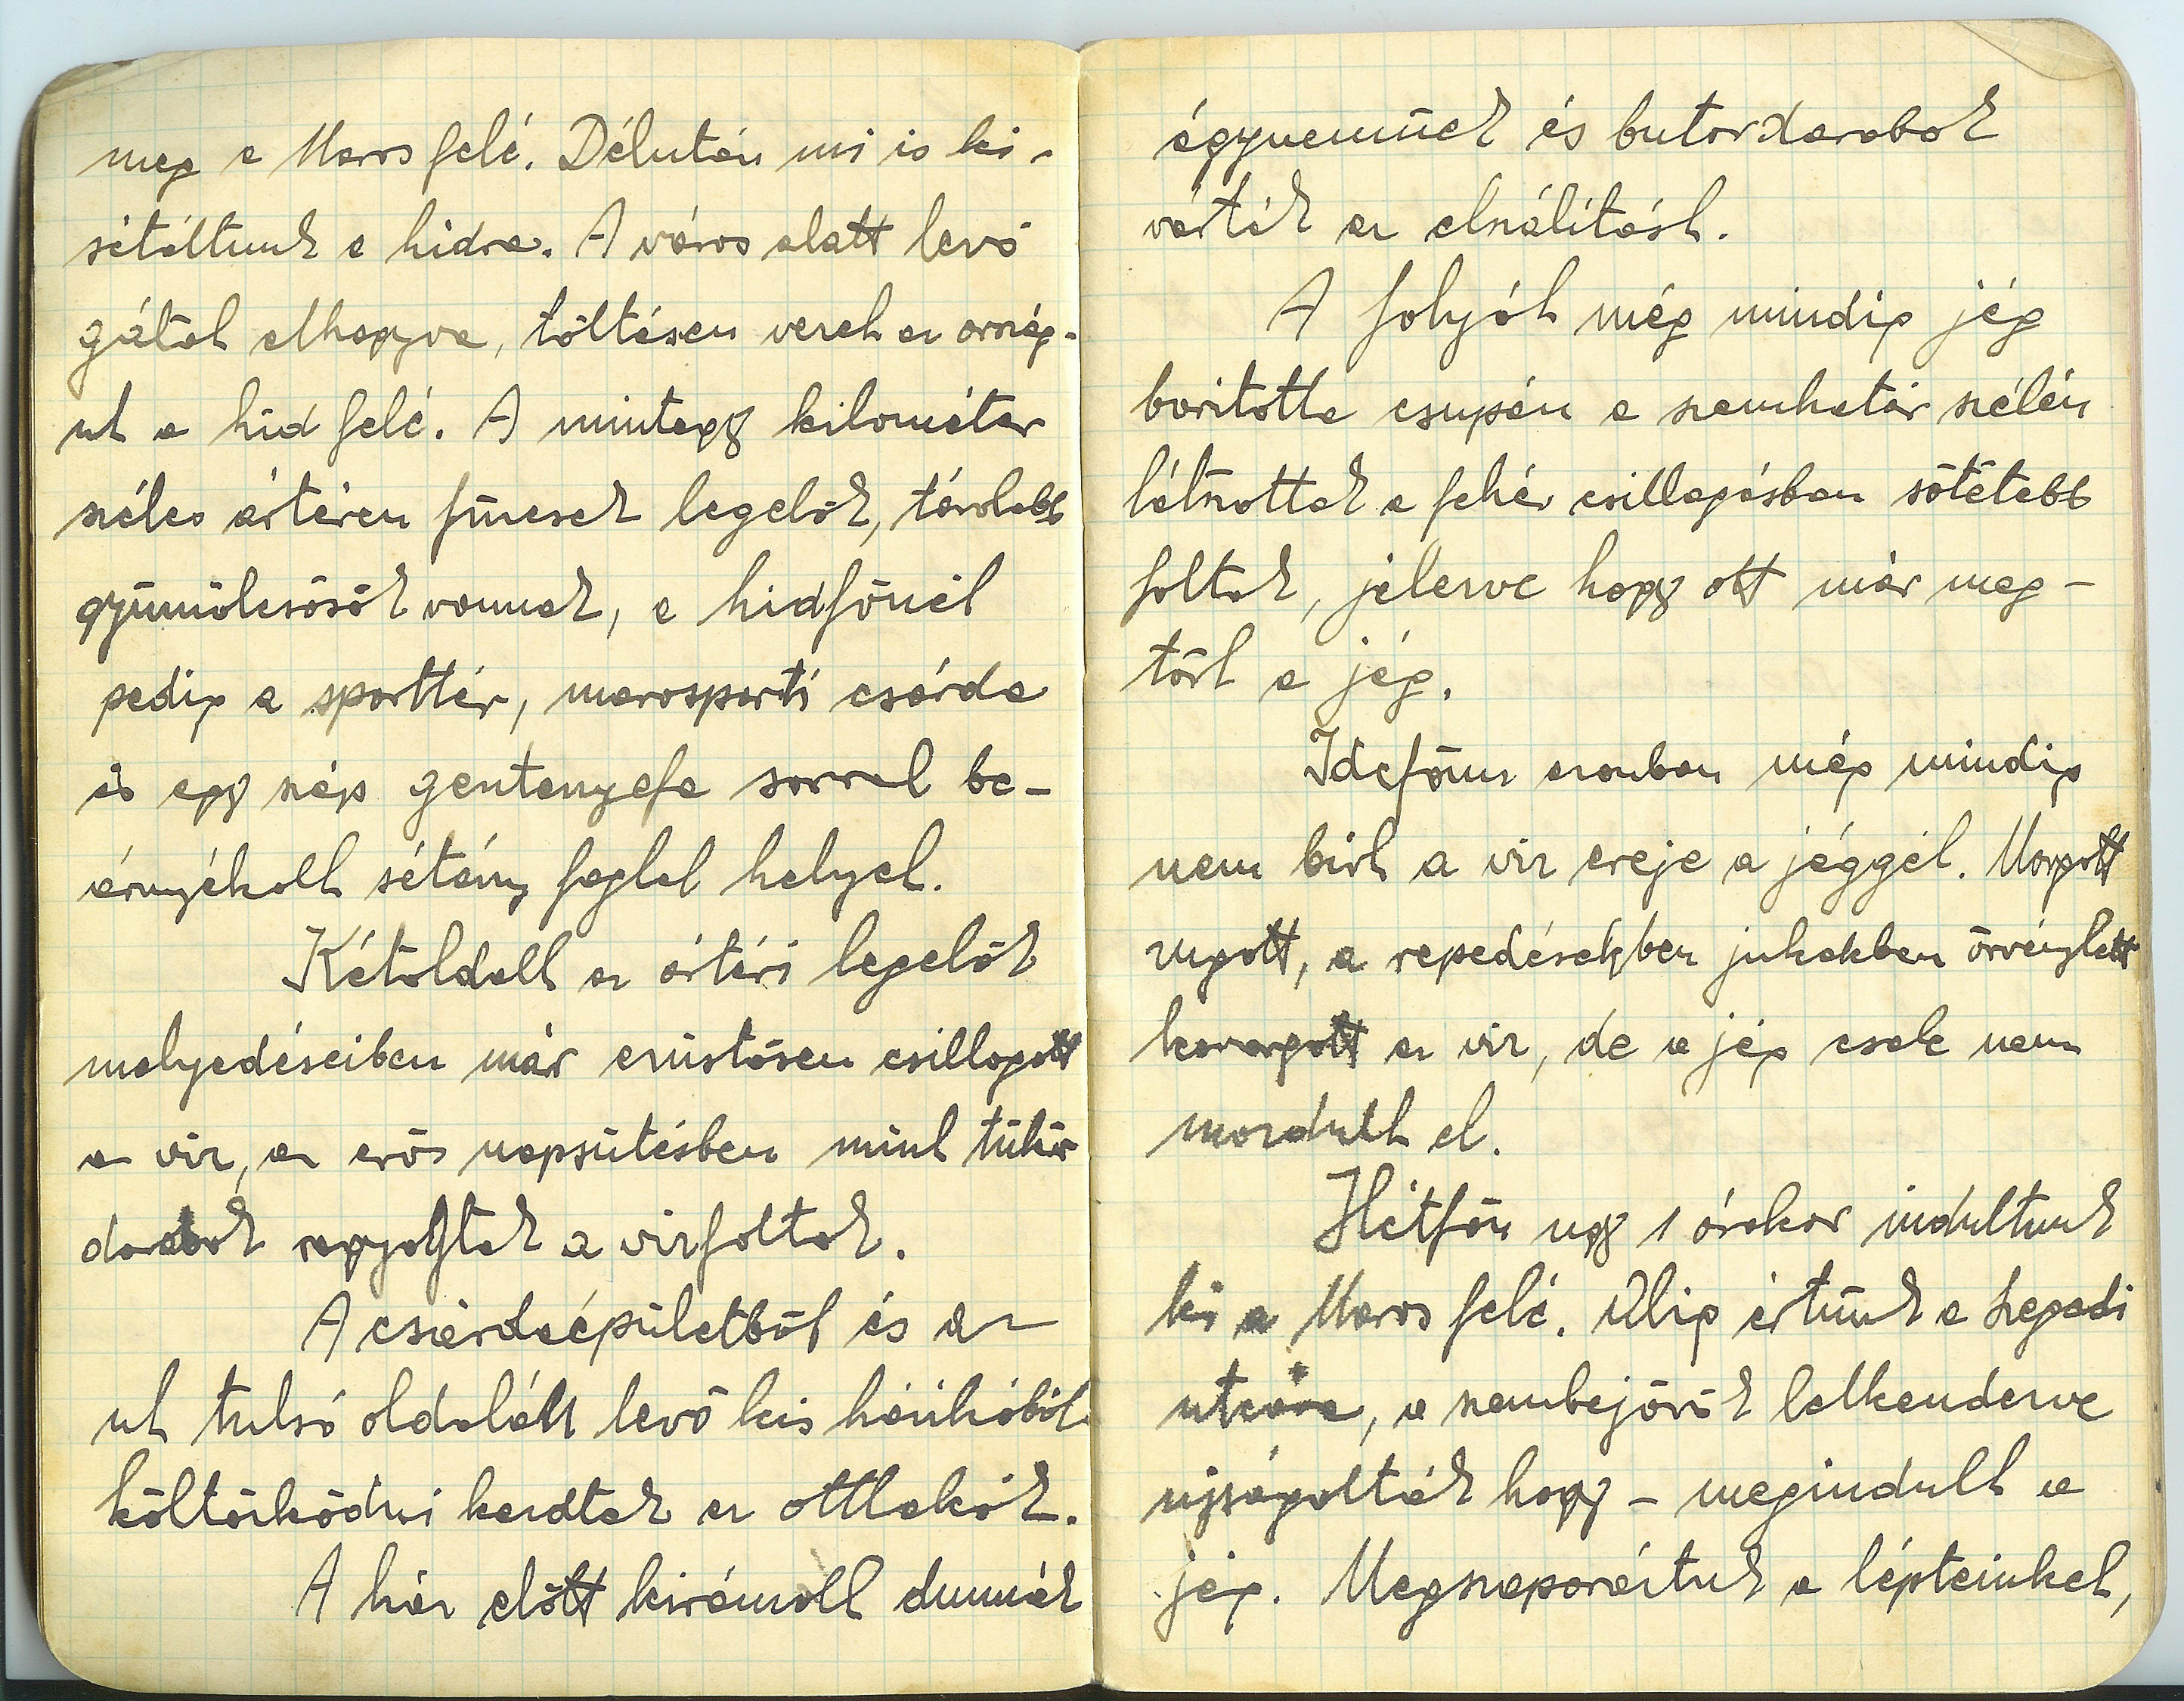 meg a Maros felé. Délután mi is ki-
sétáltunk a hidra. A város alatt levő
gátat elhagyva, töltésen vezet az ország-
ut a hid felé. A mintegy kilométer
széles ártéren füzesek legelők, távolabb
gyümölcsösök vannak, a hidfőnél
pedig a sporttér, marosparti csárda
és egy szép gesztenyefa sorral be-
árnyékolt sétány foglal helyet.
Kétoldalt az ártéri legelők
mélyedéseiben már ezüstösen csillogott
a viz, az erős napsütésben mint tükör
darabok ragyogtak a vizfoltok.
A csárdaépületből és az
ut tulsó oldalán levő kis házikóból
költözködni kezdtek az ottlakók.
A ház előtt kirámolt dunnák
ágynemüek és butordarabok
várták az elszálitást.
A folyót még mindig jég
boritotta csupán a szemhatár szélén
látszottak a fehér csillogásban sötétebb
foltok, jelezve hogy ott már meg-
tört a jég.
Idefönn azonban még mindig
nem birt a viz ereje a jéggel. Morgott
zugott, a repedésekben jukakben örvénylett
kavargott a viz, de a jég csak nem
mozdult el.
Hétfőn ugy 1 órakor indultunk
ki a Maros felé. Alig értünk a Szegedi
utcára, a szembejövők lelkendezve
ujságolták hogy - megindult a
jég. Megszaporáztuk a lépteinket,